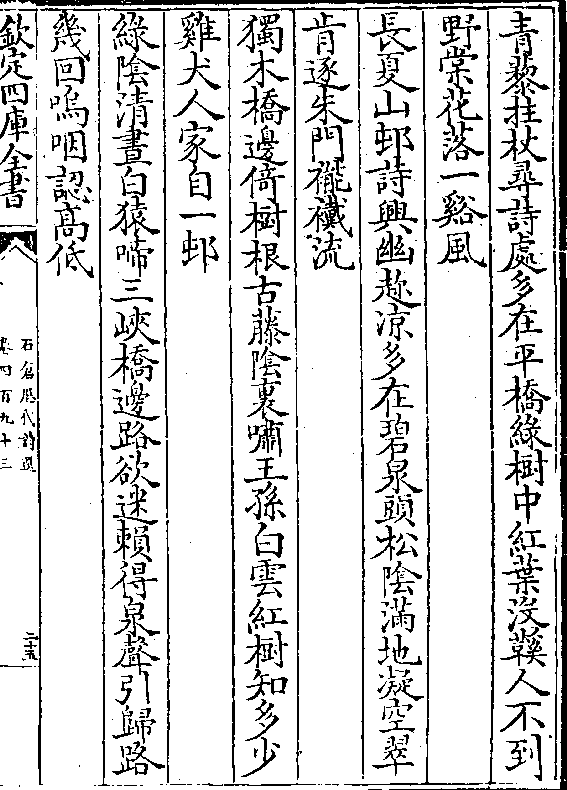 青藜拄杖尋詩處多在平橋綠樹中紅葉沒鞵人不到
野棠花落一谿風
長夏山邨詩興幽趂凉多在碧泉頭松陰滿地凝空翠
肯逐朱門褦襶流
獨木橋邊倚樹根古藤陰裏嘯王孫白雲紅樹知多少
雞犬人家自一邨
綠陰清晝白猿啼三峽橋邊路欲迷賴得泉聲引歸路
幾回嗚咽認髙低
欽定四庫全書
石倉歷代詩選
卷四百九十三
二十五